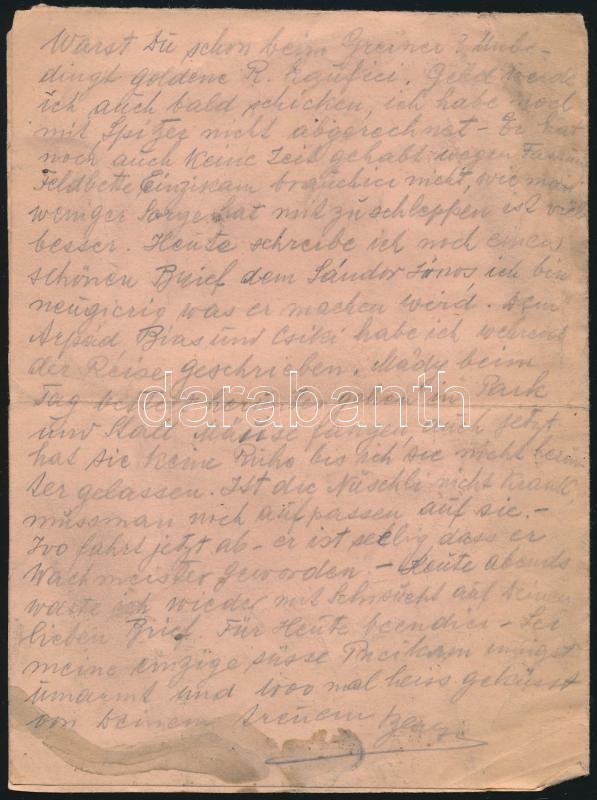 Warst Du schon beim Greiner? Unbe-
dingt goldene R. Geld werde
ich auch bald schicken, ich habe noch
mit Spitzer nicht abgerechnet - Er hat
noch auch keine Zeit gehabt wegen
Feldbette brauchici nicht, wie man
weniger Sorge hat mit zu schleppen ist viel
besser. Heute schreibe ich noch einen
schönen Brief dem Sándor János ich bin
neugierig was er machen weird. Dem
Arpád und Csiki habe ich wehrend
der Reise geschrieben. Mády beim
Tag gehen in Park
und Stall Mäuse fangen auch jetzt
hat sie keine Ruhe bis ich sie nicht herun
ter gelassen. Ist die nicht krank,
mussman noch aufpassen auf sie. -
Ivo fahrt jetzt ab - er ist seelig dass er
Wachmeister geworden - Heute abends
warte ich wieder mit Sehnsucht auf Deinen
lieben Brief. Für Heute beendici - Sei
meine einzige süsse innigst
umarmt und 1000 mal heiss geküsst
von Deinem treuem
darabanth